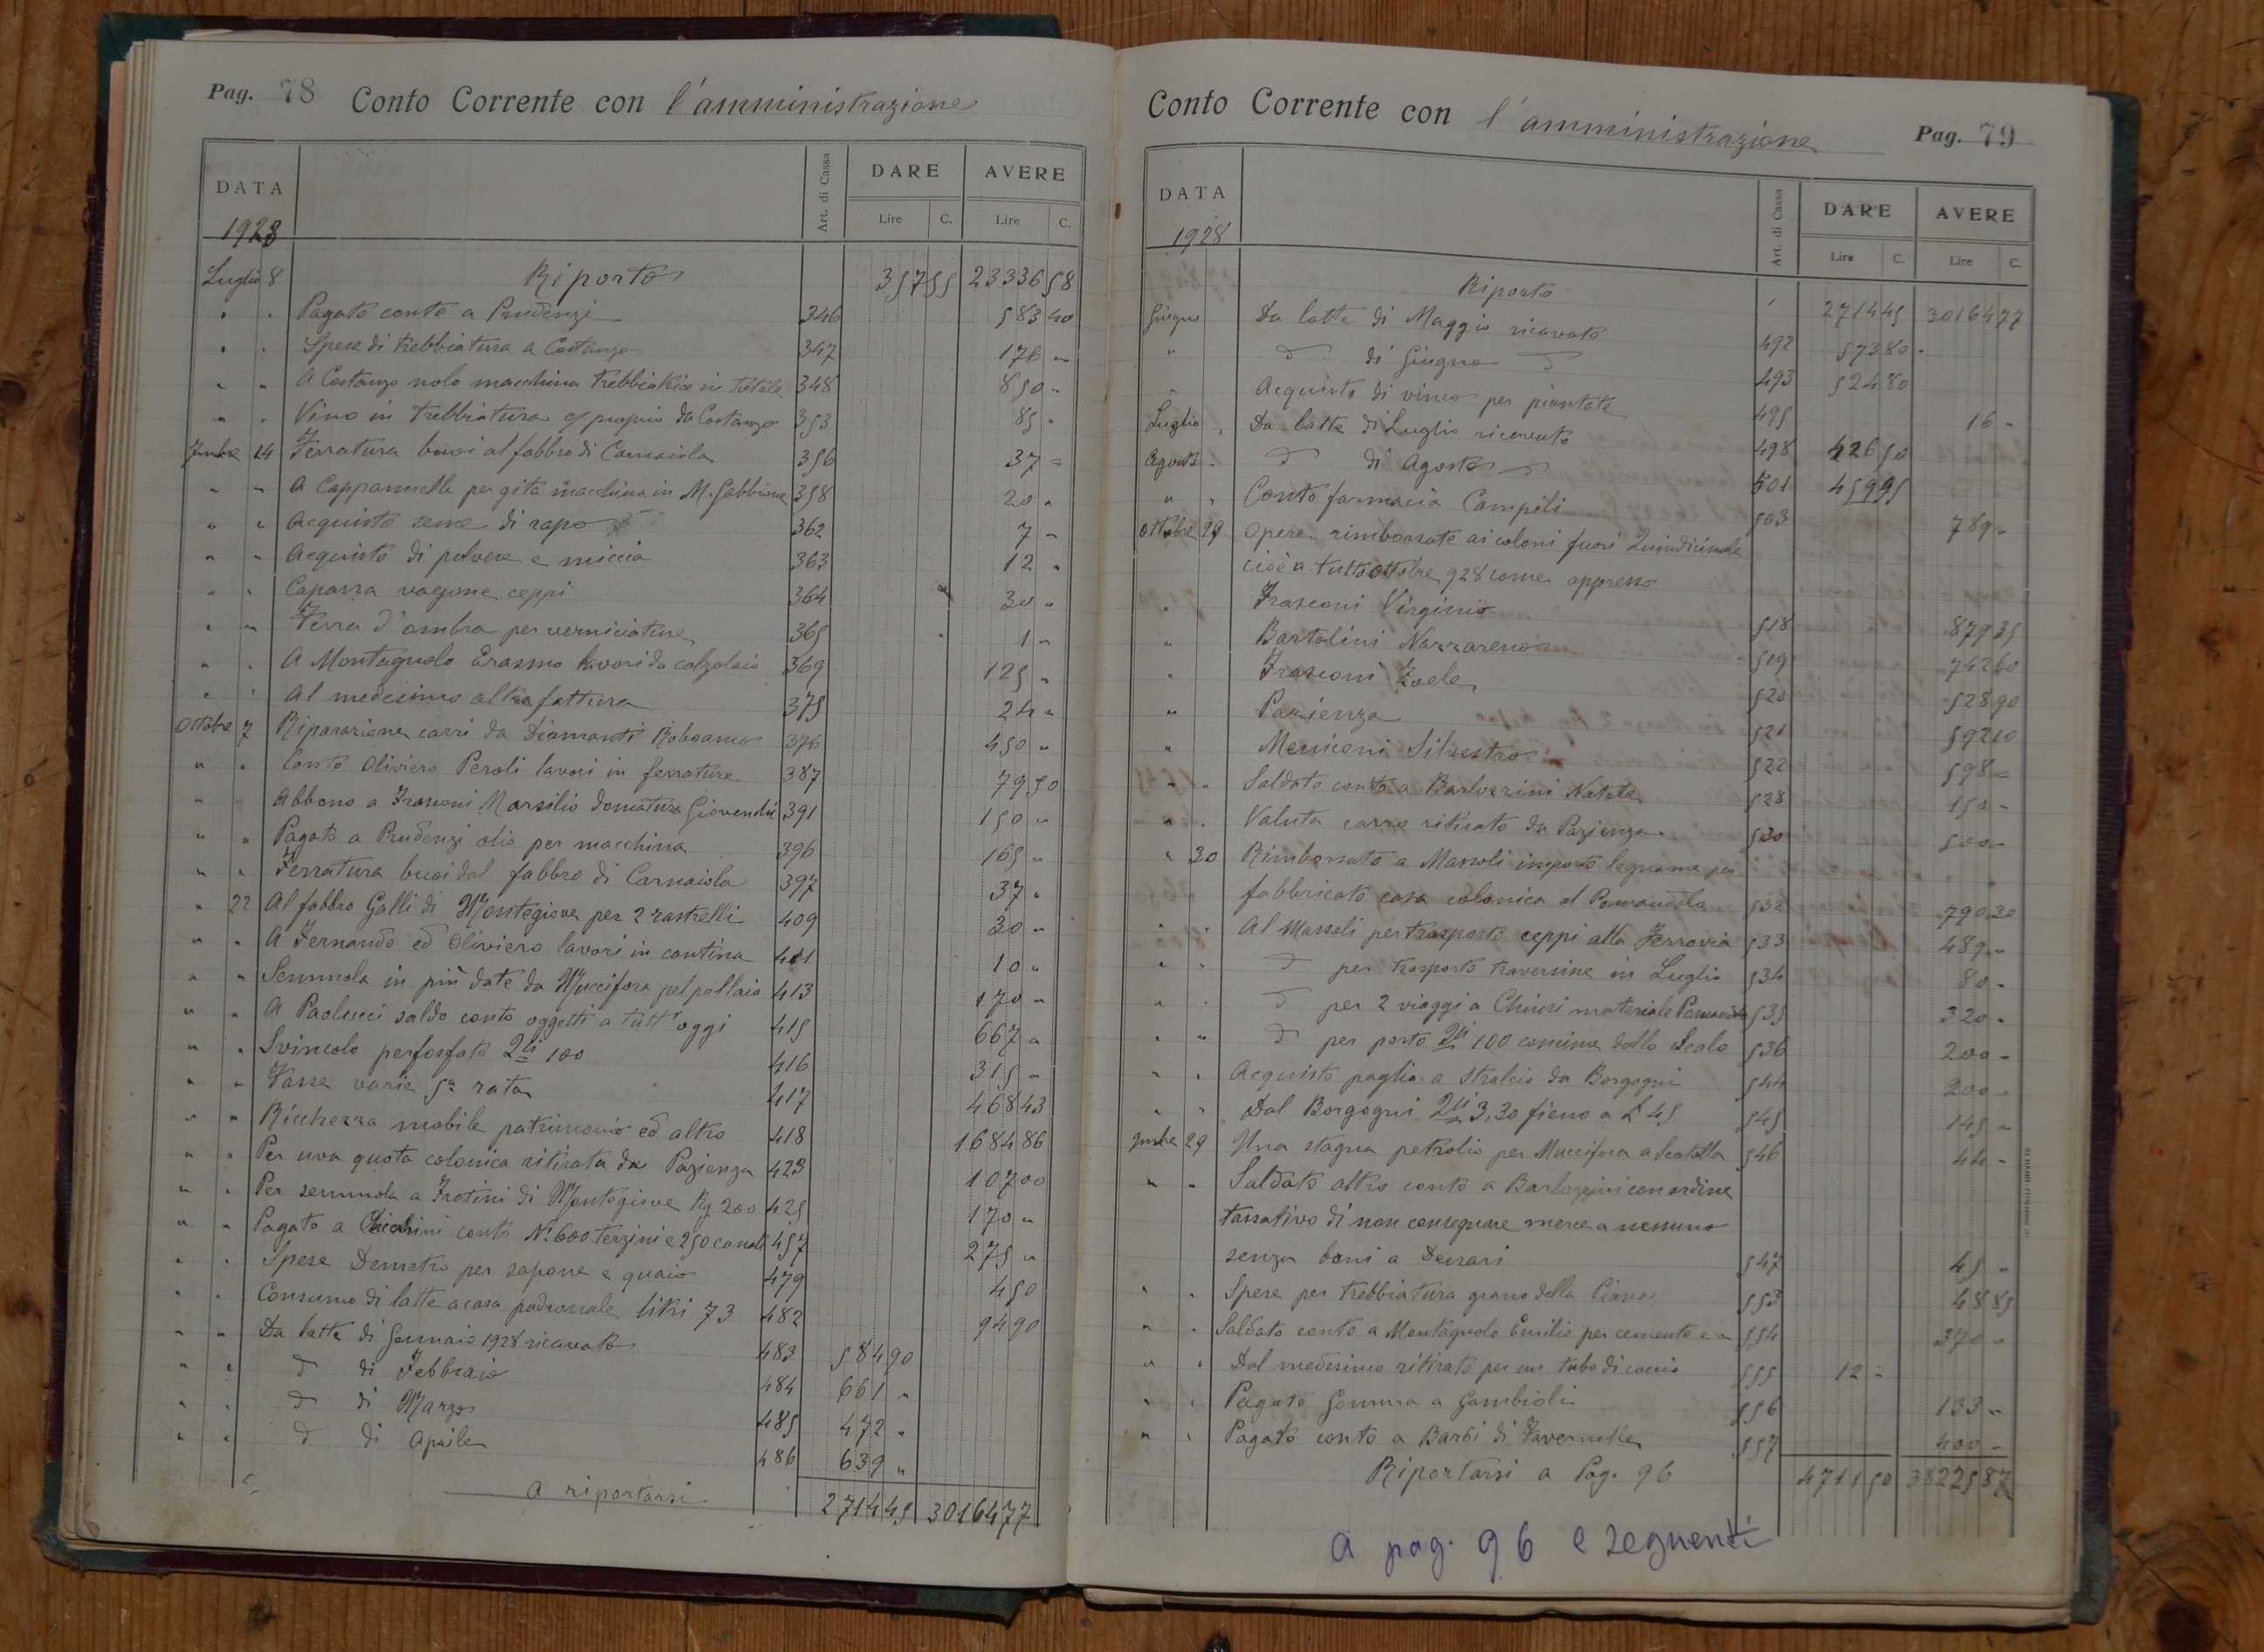 Pag. 78 Conto Corrente con l'amministrazione
DATA Art. di Cassa DARE AVERE
Lire C. Lire C.
1928
Luglio 8 Riporto 357 55 23336 58
" " Pagato conto a Prudenzi 346 583 40
" " Spese di trebbiatura a Costanzo 347 176 "
" " A Costanzo nolo macchina trebbiatrice in totale 348 850 "
" " Vino in trebbiatura c/ proprio da Costanzo 353 85 "
7mbre 14 Ferratura buoi al fabbro di Carnaiola 356 37 =
" " A Cappannelle per gita macchina in M. Gabbione 358 20 "
" " Acquisto seme di rapo 362 7 "
" " Acquisto di polvere e miccia 363 12 "
" " Caparra vagone ceppi 364 30 "
" " Terra d'ombra per verniciature 365 1 "
" " A Montagnolo Erasmo lavori da calzolaio 369 125 "
" " Al medesimo altra fattura 375 24 "
Ottobre 7 Riparazione carri da Diamanti Roboamo 376 450 "
" " Conto Oliviero Peroli lavori in ferrature 387 79 50
" " Abbono a Frasconi Marsilio domatura Giovenchi 391 150 "
" " Pagato a Prudenzi olio per macchina 396 165 "
" " Ferratura buoi dal fabbro di Carnaiola 397 37 "
" 22 Al fabbro Galli di Montegiove per 2 rastrelli 409 30 "
" " A Fernando ed Oliviero lavori in cantina 411 10 "
" " Semmola in più date da Muccifora pel pollaio 413 170 "
" " A Paolucci saldo conto oggetti a tutt'oggi 415 667 "
" " Svincolo perfosfato Qli 100 416 315 "
" " Tasse varie 5a rata 417 468 43
" " Ricchezza mobile patrimonio ed altro 418 1684 86
" " Per uva quota colonica ritirata da Pazienza 423 107 00
" " Per semmola a Frotini di Montegiove Kg 200 425 170 "
" " Pagato a Cicchini conto N. 600 terzini e 250 canali 457 275 "
" " Spese Demetro per sapone e guaio 479 4 50
" " Consumo di latte a casa padronale litri 73 482 94 90
" " Da latte di Gennaio 1928 ricavato 483 584 90
" " d di Febbraio 484 661 "
" " d di Marzo 485 472 "
" " d di Aprile 486 639 "
a riportarsi 2714 45 30164 77
Conto Corrente con l'amministrazione Pag. 79
DATA Art. di Cassa DARE AVERE
Lire C. Lire C.
1928
Riporto 2714 45 30164 77
Giugno Da latte di Maggio ricavato 492 573 80
" d di Giugno d 493 524 80
" Acquisto di vinco per piantate 495 16 "
Luglio " Da latte di Luglio ricavato 498 426 50
Agosto " d di Agosto d 501 459 95
" " Conto farmacia Campili 503 789 "
Ottobre 29 Opere rimborsate ai coloni fuori Quindicinale
cioè a tutto ottobre 928 come appresso
" Frasconi Virginio 518 879 35
" Bartolini Nazzareno 519 742 60
" Frasconi Zoele 520 528 90
" Pazienza 521 592 10
" Meniconi Silvestro 522 598 =
" " Saldato conto a Barlozzini Natale 528 150 "
" " Valuta carro ritirato da Pazienza 530 500 "
" 30 Rimborsato a Massoli importo legname per
fabbricato casa colonica al Pomandola 532 790 30
" " Al Massoli per trasporto ceppi alla Ferrovia 533 489 "
" " d per trasporto traversine in Luglio 534 80 "
" " d per 2 viaggi a Chiusi materiale Pomandola 535 320 "
" " d per porto Qli 100 concime dallo Scalo 536 200 "
" " Acquisto paglia a stralcio da Borgogni 544 200 "
" " Dal Borgogni Qli 3,30 fieno a £ 45 545 145 "
9mbre 29 Una stagna petrolio per Muccifora a Scatolla 546 44 "
" " Saldato altro conto a Barlozzini con ordine
tassativo di non consegnare merce a nessuno
senza boni a Denari 547 45 "
" " Spese per trebbiatura grano della Piana 553 48 85
" " Saldato conto a Montagnolo Emilio per cemento e " 554 370 "
" " Dal medesimo ritirato per un tubo di coccio 555 12 "
" " Pagato Gomma a Gambioli 556 133 "
" " Pagato conto a Barbi di Tavernelle 557 400 "
Riportarsi a Pag. 96 4711 50 38225 87
a pag. 96 e seguenti